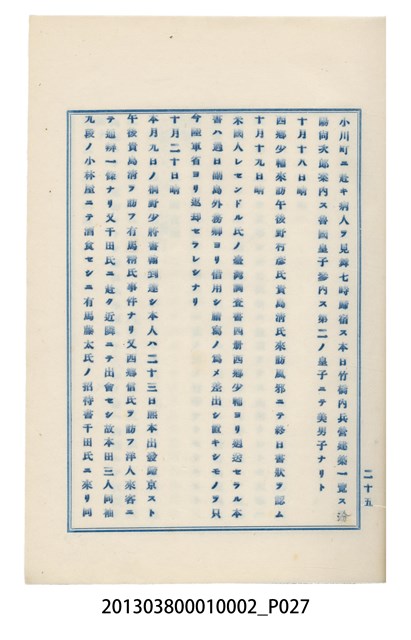 小川町ニ赴キ病人ヲ見舞七時歸宿ス本日竹橋內兵營建築一覽ス
嗣同次郎案內ス魯國皇子參內ス第二ノ皇子ニテ美男子ナリト
十月十八日晴
西鄉少輔來訪午後野村彥氏貴島清氏來訪風邪ニテ終日書狀ヲ認ム
十月十九日晴
米國人レセンドル氏ノ臺灣調查書四册西鄉少輔ヨリ返送セラル本
書ハ過日副島外務卿ヨリ借用シ謄寫ノ爲メ差出シ置キシモノヲ只
今陸軍省ヨリ返却セラレシナリ
十月二十日晴
本月九日ノ桐野少將書輸到達シ本人ハ二十三日熊本出發歸京スト
午後貴島清ヲ訪フ有馬糺氏事件ナリ又西鄉信氏ヲ訪フ洋人來客ニ
テ退辨一條ナリ又千田氏ニ赴ク近隣ニテ出會セシ故本田三人同袖
九段ノ小林屋ニテ酒食セシニ有馬藤太氏ノ招待書千田氏ニ來リ同
二十五
201303800010002_P027